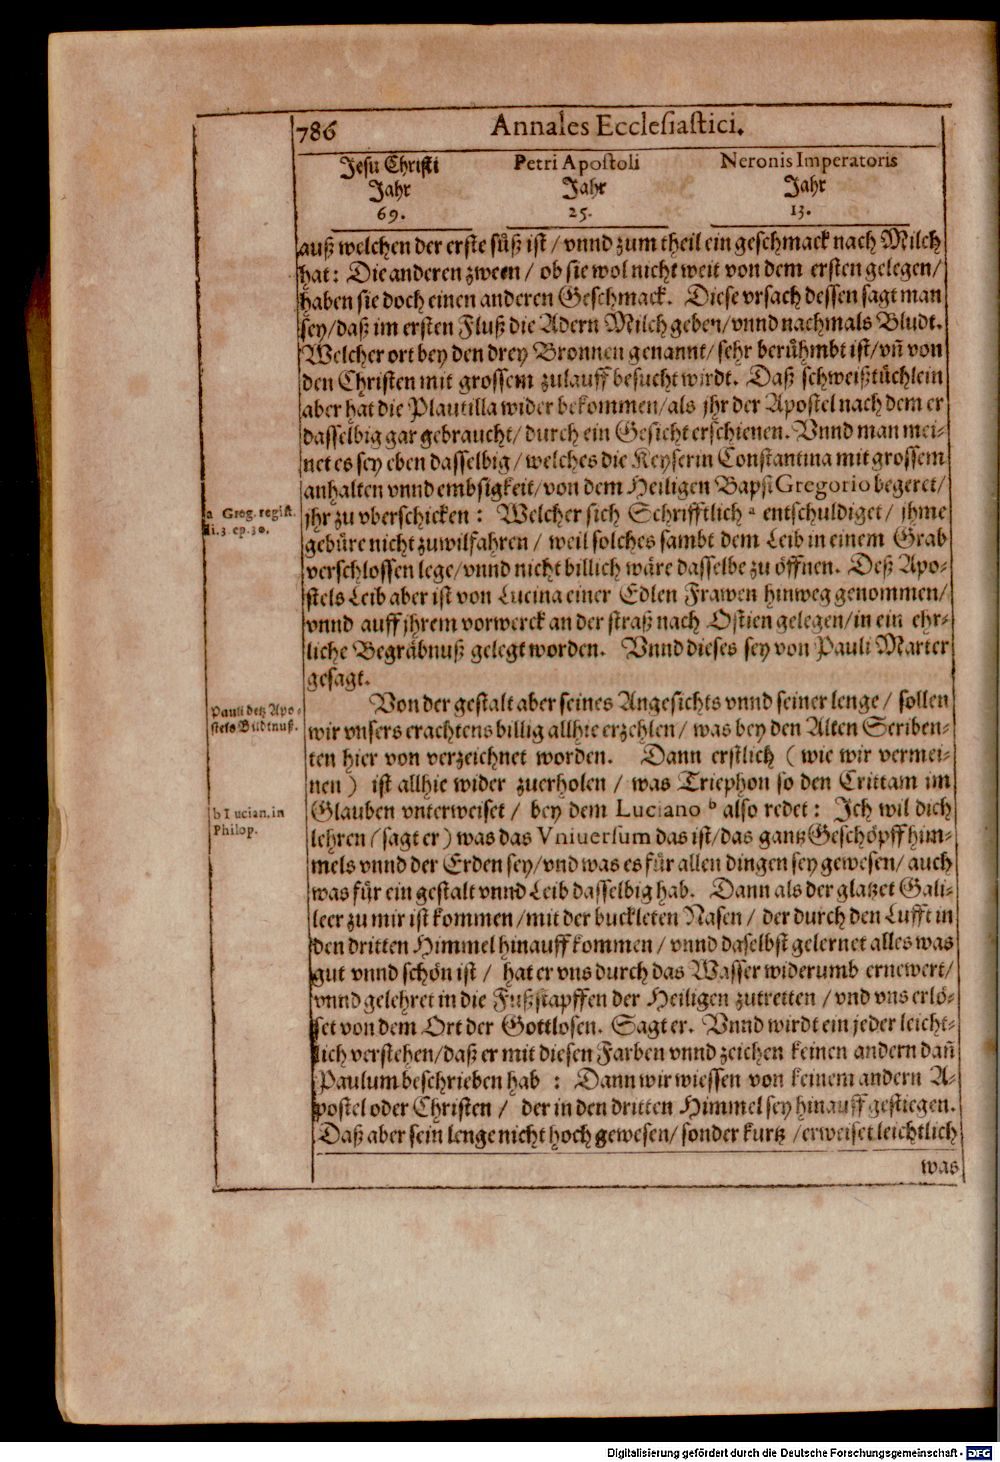 786 Annales Ecclesiastici.
Jesu Christi Petri Apostoli Neronis Imperatoris
Jahr Jahr Jahr
69. 25. 13.
auß welchen der erste süß ist / vnnd zum theil ein geschmack nach Milch
hat: Die anderen zween / ob sie wol nicht weit von dem ersten gelegen /
haben sie doch einen anderen Geschmack. Diese vrsach dessen sagt man
sey / daß im ersten Fluß die Adern Milch geben / vnnd nachmals Bludt.
Welcher ort bey den drey Bronnen genannt / sehr berühmbt ist / vñ von
den Christen mit grossem zulauff besucht wirdt. Daß schweißtüchlein
aber hat die Plautilla wider bekommen / als jhr der Apostel nach dem er
dasselbig gar gebraucht / durch ein Gesicht erschienen. Vnnd man mei-
net es sey eben dasselbig / welches die Keyserin Constantina mit grossem
anhalten vnnd embsigkeit / von dem Heiligen Bapst Gregorio begeret /
a Greg. regist.
li. 3. ep. 30.
jhr zu vberschicken: Welcher sich Schrifftlich a entschuldiget / jhme
gebüre nicht zuwilfahren / weil solches sambt dem Leib in einem Grab
verschlossen lege / vnnd nicht billich wäre dasselbe zu öffnen. Deß Apo-
stels Leib aber ist von Lucina einer Edlen Frawen hinweg genommen /
vnnd auff jhrem vorwerck an der straß nach Ostien gelegen / in ein ehr-
liche Begräbnuß gelegt worden. Vnnd dieses sey von Pauli Marter
gesagt.
Pauli deß Apo-
stels Bildtnuß.
Von der gestalt aber seines Angesichts vnnd seiner lenge / sollen
wir vnsers erachtens billig allhie erzehlen / was bey den Alten Scriben-
ten hier von verzeichnet worden. Dann erstlich (wie wir vermei-
nen) ist allhie wider zuerholen / was Triephon so den Crittam im
b Lucian. in
Philop.
Glauben vnterweiset / bey dem Luciano b also redet: Ich wil dich
lehren (sagt er) was das Vniuersum das ist / das gantz Geschöpff him-
mels vnnd der Erden sey / vnd was es für allen dingen sey gewesen / auch
was für ein gestalt vnnd Leib dasselbig hab. Dann als der glatzet Gali-
leer zu mir ist kommen / mit der buckleten Nasen / der durch den Lufft in
den dritten Himmel hinauff kommen / vnnd daselbst gelernet alles was
gut vnnd schön ist / hat er vns durch das Wasser widerumb ernewert /
vnnd gelehret in die Fußstapffen der Heiligen zutretten / vnd vns erlö-
set von dem Ort der Gottlosen. Sagt er. Vnnd wirdt ein jeder leicht-
lich verstehen / daß er mit diesen Farben vnnd zeichen keinen andern dañ
Paulum beschrieben hab: Dann wir wiessen von keinem andern A-
postel oder Christen / der in den dritten Himmel sey hinauff gestiegen.
Daß aber sein lenge nicht hoch gewesen / sonder kurtz / erweiset leichtlich
was
Digitalisierung gefördert durch die Deutsche Forschungsgemeinschaft - DFG